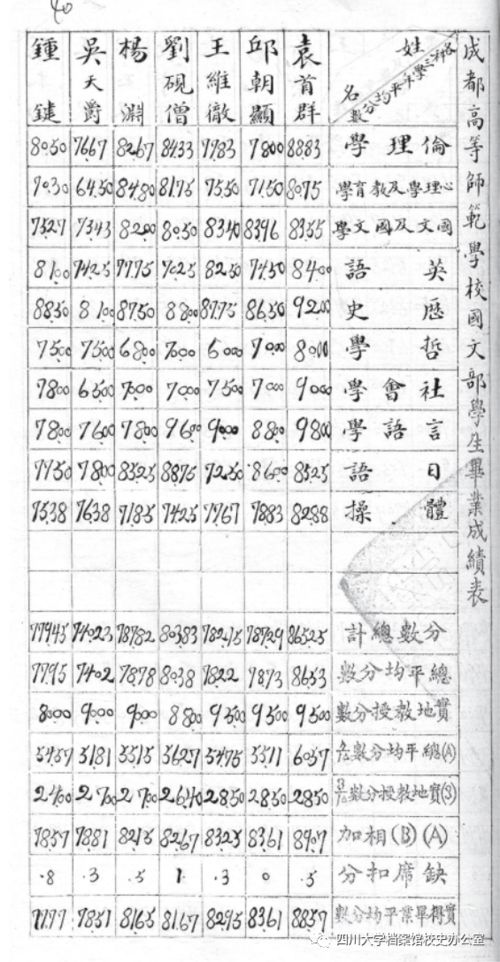 40
成都高等師範學校國文部學生畢業成績表
姓名 各科三學年平均分數 袁首群 邱朝顯 王維徹 劉硯僧 楊淵 吳天爵 鍾鍵
倫理學 8883 7800 7783 8433 8267 7667 8050
心理學及教育學 8075 7150 7550 8175 8480 6450 7030
國文及國文學 8355 8396 8340 8050 8200 7343 7527
英語 8400 7450 8250 7025 7775 7425 8100
歷史 9200 8650 8775 8800 8750 8100 8850
哲學 8000 7000 6000 7000 6800 7500 7500
社會學 9000 7000 7500 7000 7000 6500 7800
言語學 9800 8800 9000 9600 7800 7600 7800
日語 8525 8600 7250 8875 8525 7800 7750
體操 8288 7883 7767 7425 7185 7638 7538
分數總計 86525 78729 78215 80383 78782 74023 77945
總平均分數 8653 7873 7822 8038 7878 7402 7795
實地教授分數 9500 9500 9500 8800 9000 9000 8000
(A)總平均分數 6057 5511 5475 5627 5515 5181 5457
實地教授分數 2850 2850 2850 2640 2700 2700 2400
(A)(B)相加 8907 8361 8325 8267 8215 7881 7857
缺席扣分 .5 0 .3 1 .5 .3 .8
實得畢業平均分數 8857 8361 8295 8167 8165 7851 7777
四川大学档案馆校史办公室